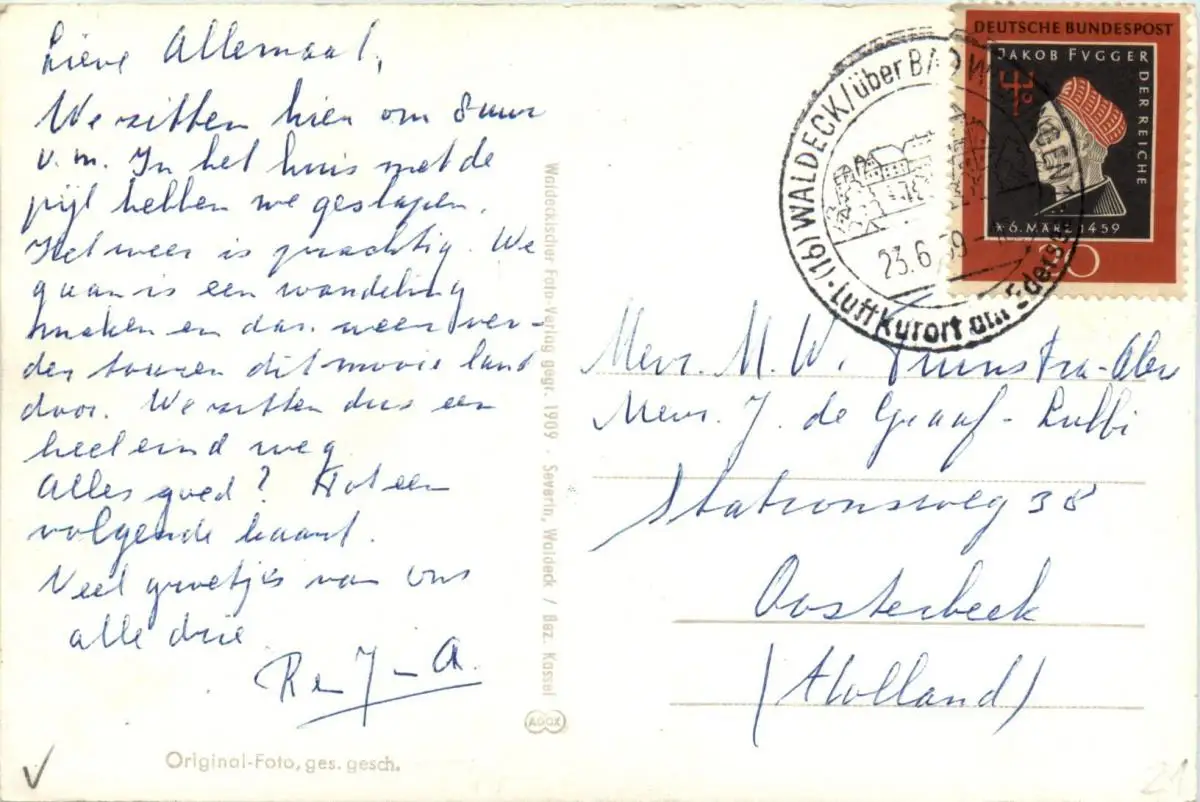 Lieve Allemaal,
We zitten hier om 8 uur
v.m. In het huis met de
pijl hebben we geslapen.
Het weer is prachtig. We
gaan is een wandeling
maken en dan weer ver-
der touren dit mooie land
door. We zitten dus een
heel eind weg
Alles goed? Tot een
volgende kaart.
Veel groetjes van ons
alle drie
R en J - A.
Original-Foto, ges. gesch.
Waldeckischer Foto-Verlag gegr. 1909 · Severin, Waldeck / Bez. Kassel
ADOX
DEUTSCHE BUNDESPOST
JAKOB FVGGER
DER REICHE
* 6. MÄRZ 1459
20
(16) WALDECK / über BAD W
23.6.59
Luftkurort am Edersee
Mevr. M. W.
Mevr. J. de Graaf-
Stationsweg 38
Oosterbeek
(Holland)
21